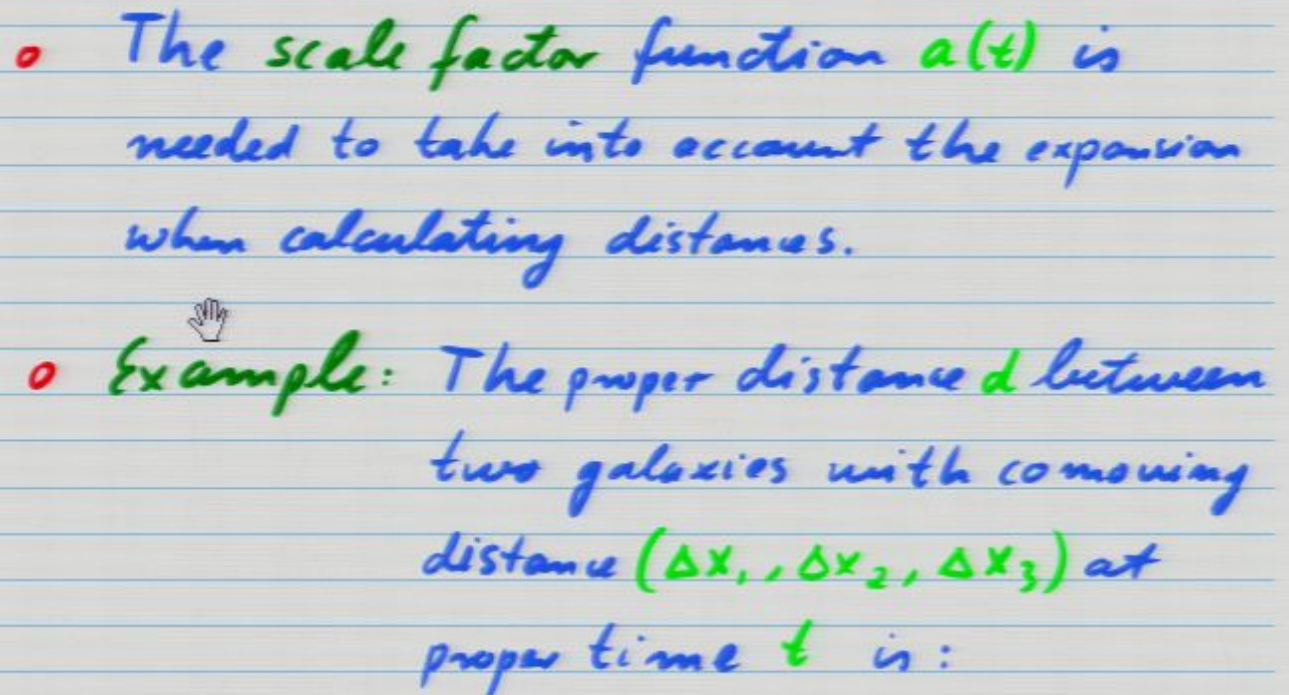 The scale factor function a(t) is
needed to take into account the expansion
when calculating distances.
Example: The proper distance d between
two galaxies with comoving
distance (Δx₁, Δx₂, Δx₃) at
proper time t is: